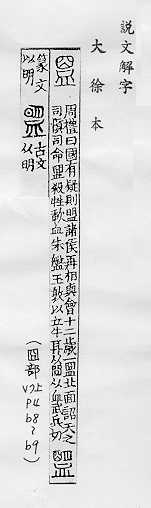 說文解字
大徐本
周禮曰國有疑則盟諸侯再相與會十二歲一盟北面詔天之
司慎司命盟殺牲歃血朱盤玉敦以立牛耳从囧从血武兵切
篆文
从明
古文
从明
(囧部
V7上
P4
b8~
b9)